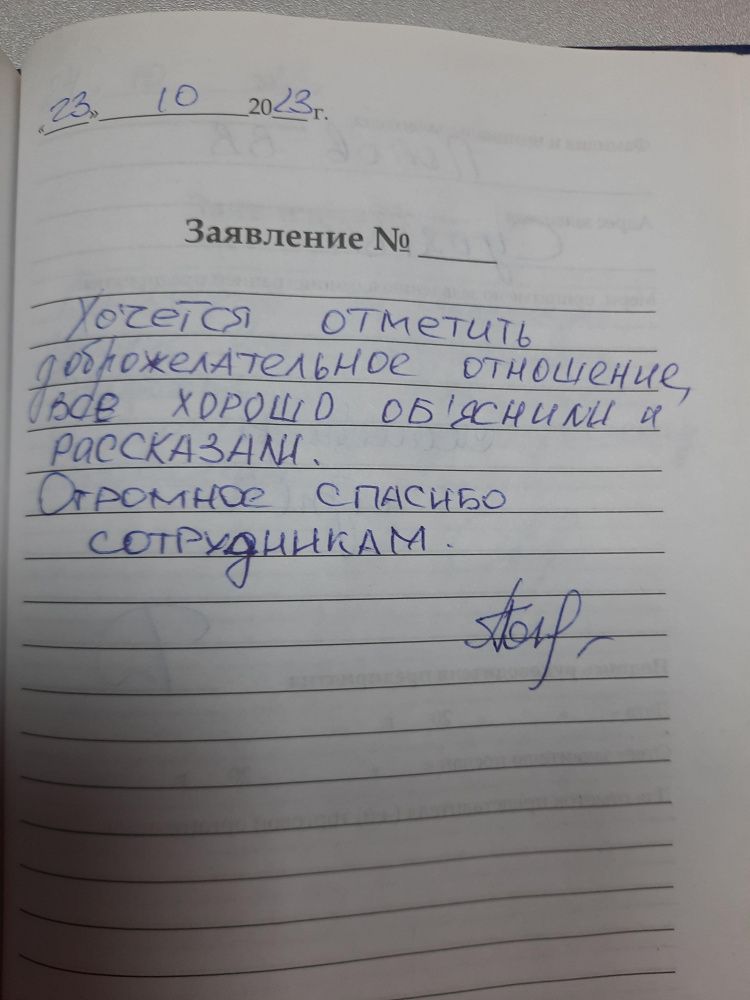 «23» 10 2023г.
Заявление №
Хочется отметить
доброжелательное отношение,
все хорошо об'яснили и
рассказали.
Огромное спасибо
сотрудникам.